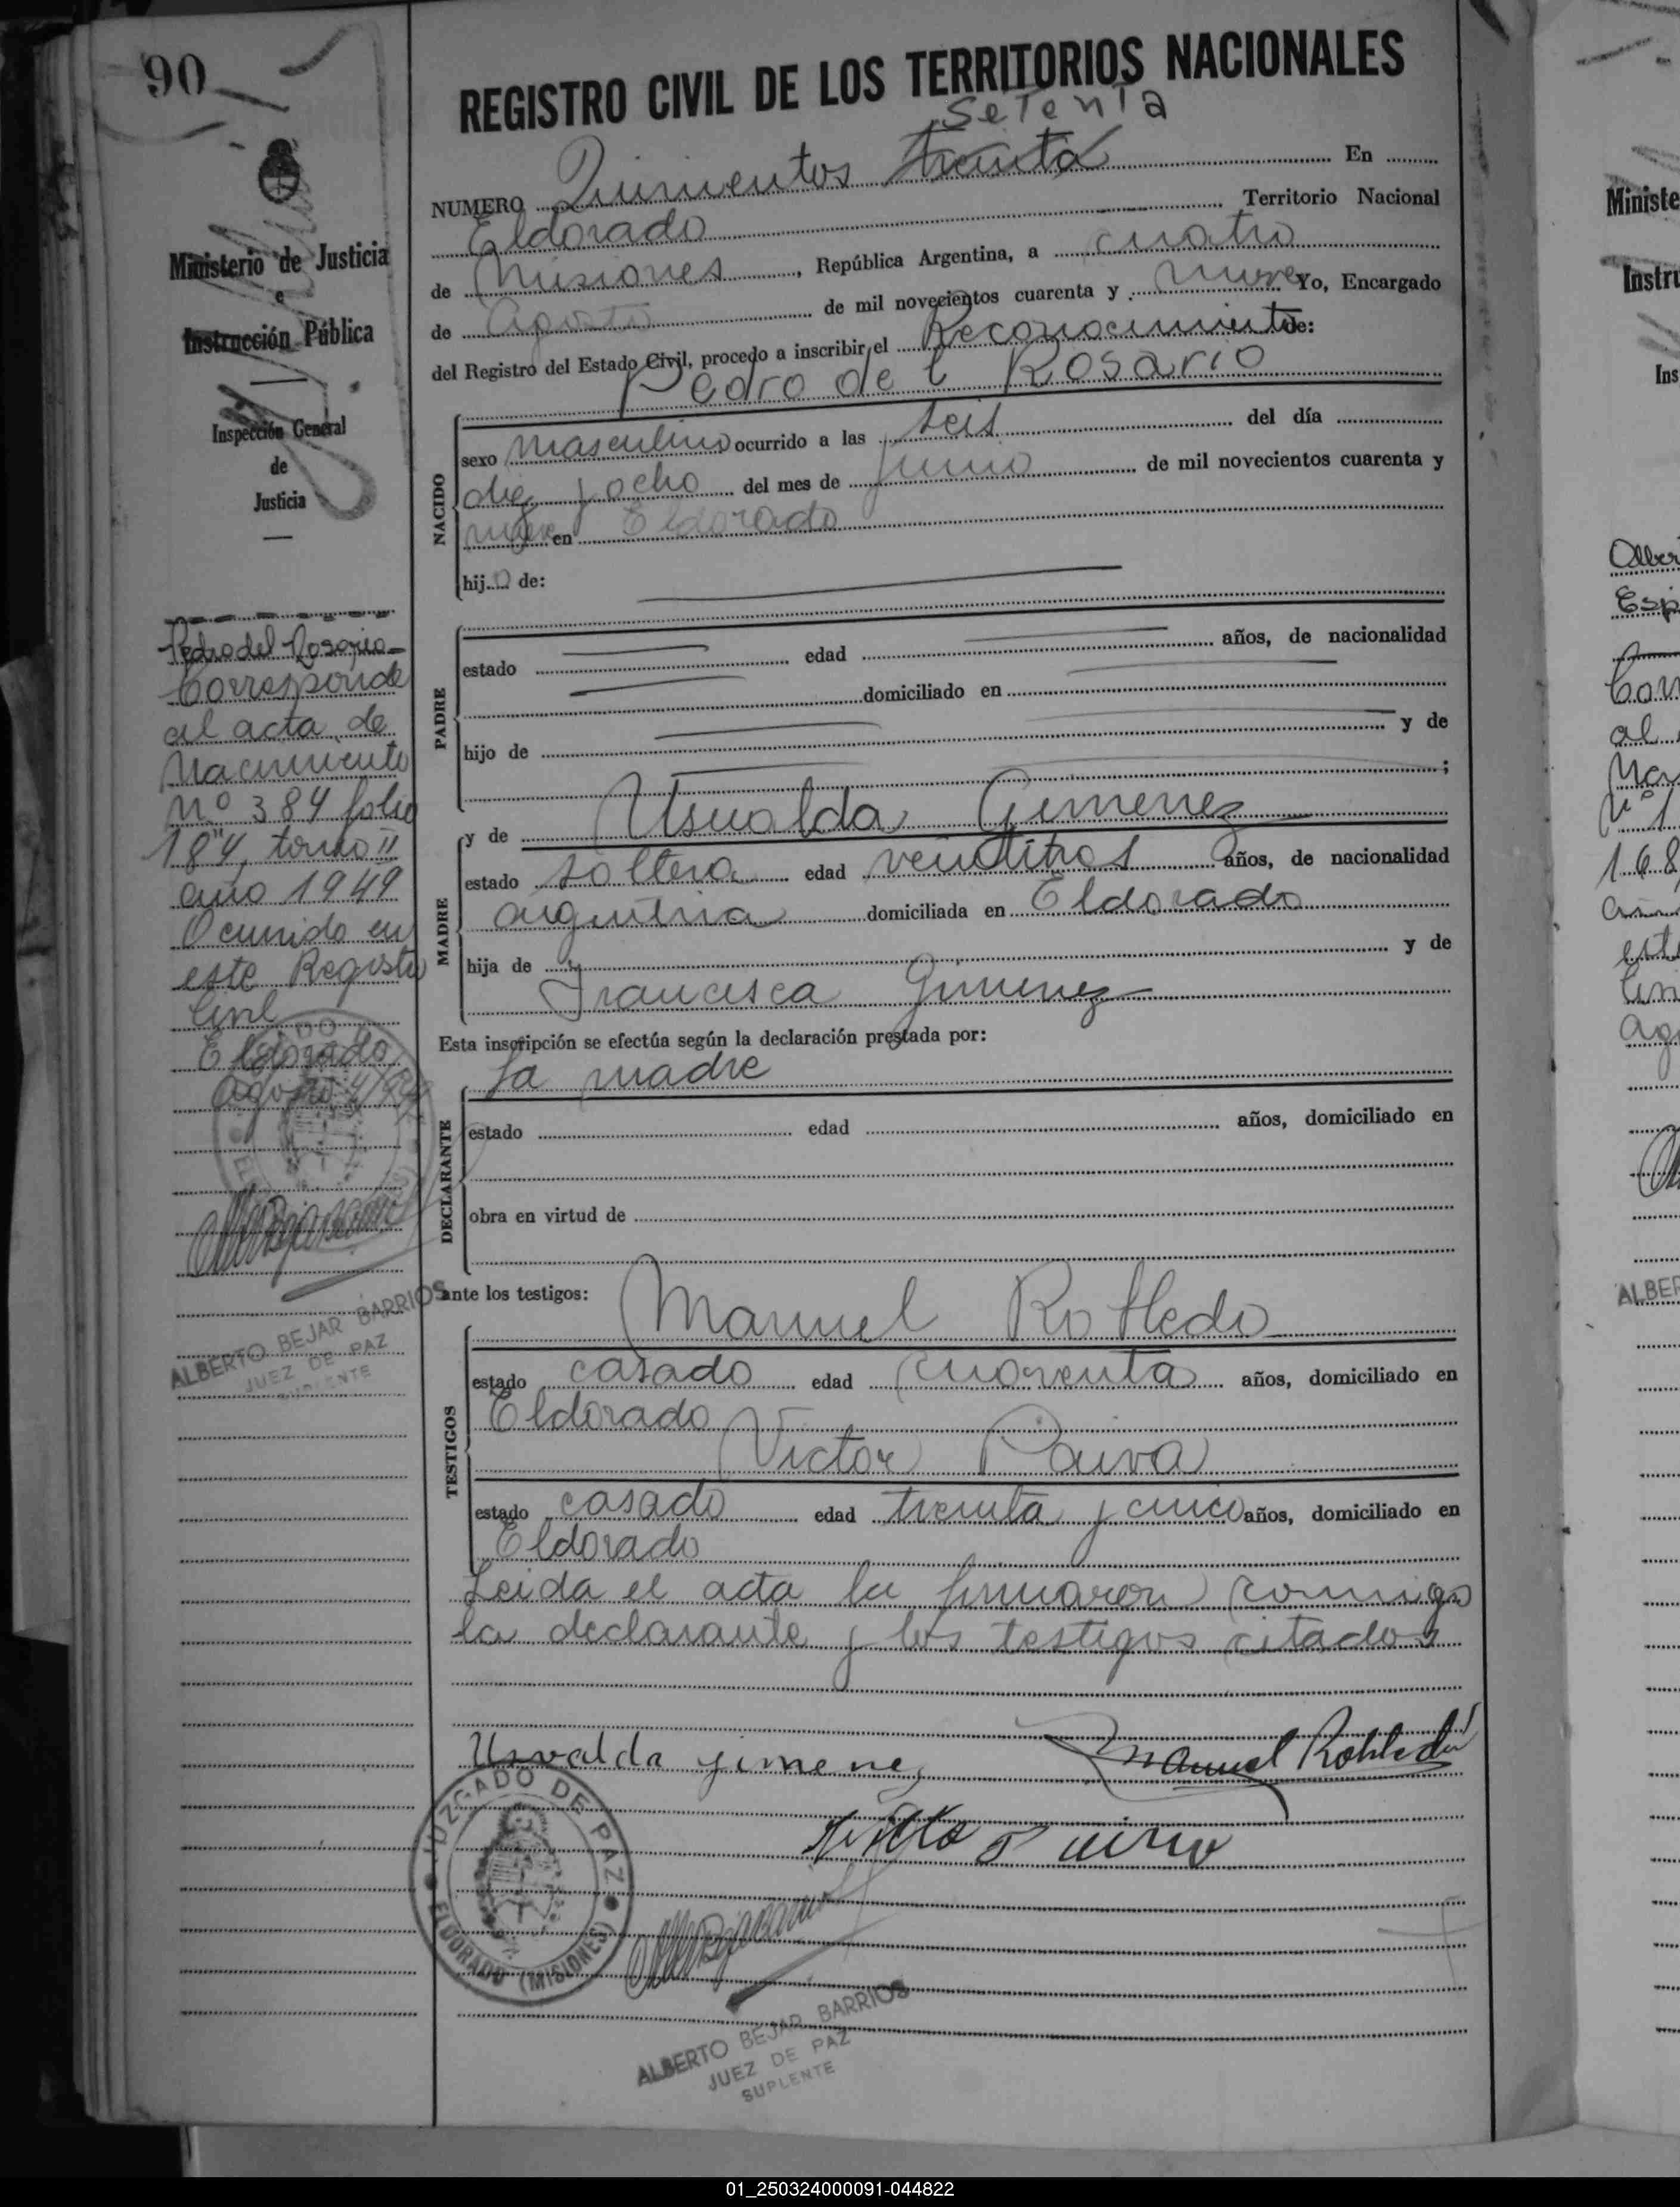 90
REGISTRO CIVIL DE LOS TERRITORIOS NACIONALES
Setenta
NUMERO Quinientos Treinta En
Eldorado Territorio Nacional
de Misiones, República Argentina, a cuatro
de Agosto de mil novecientos cuarenta y nueve Yo, Encargado
del Registro del Estado Civil, procedo a inscribir el Reconocimiento de:
Pedro del Rosario
NACIDO
sexo masculino ocurrido a las seis del día
diez y ocho del mes de junio de mil novecientos cuarenta y
nueve en Eldorado
hijo de:
PADRE
estado edad años, de nacionalidad
domiciliado en
hijo de y de
;
MADRE
y de Usualda Gimenez
estado soltera edad veintitres años, de nacionalidad
argentina domiciliada en Eldorado
hija de y de
Francisca Gimenez
Esta inscripción se efectúa según la declaración prestada por:
la madre
DECLARANTE
estado edad años, domiciliado en
obra en virtud de
ante los testigos:
Manuel Robledo
TESTIGOS
estado casado edad cuarenta años, domiciliado en
Eldorado
Victor Paiva
estado casado edad treinta y cinco años, domiciliado en
Eldorado
Leida el acta la firmaron conmigo
la declarante y los testigos citados
Usvalda gimenez
Manuel Robledo
JUZGADO DE PAZ
ELDORADO (MISIONES)
ALBERTO BEJAR BARRIOS
JUEZ DE PAZ
SUPLENTE
Ministerio de Justicia
e
Instrucción Pública
Inspección General
de
Justicia
Pedro del Rosario
Corresponde
al acta de
Nacimiento
Nº 384 folio
184, tomo II
año 1949
Ocurrido en
este Registro
Civil
Eldorado
Agosto 4/949
ALBERTO BEJAR BARRIOS
JUEZ DE PAZ
SUPLENTE
Ministe
Instru
Ins
Alber
Esp
al
168
ALBER
01_250324000091-044822